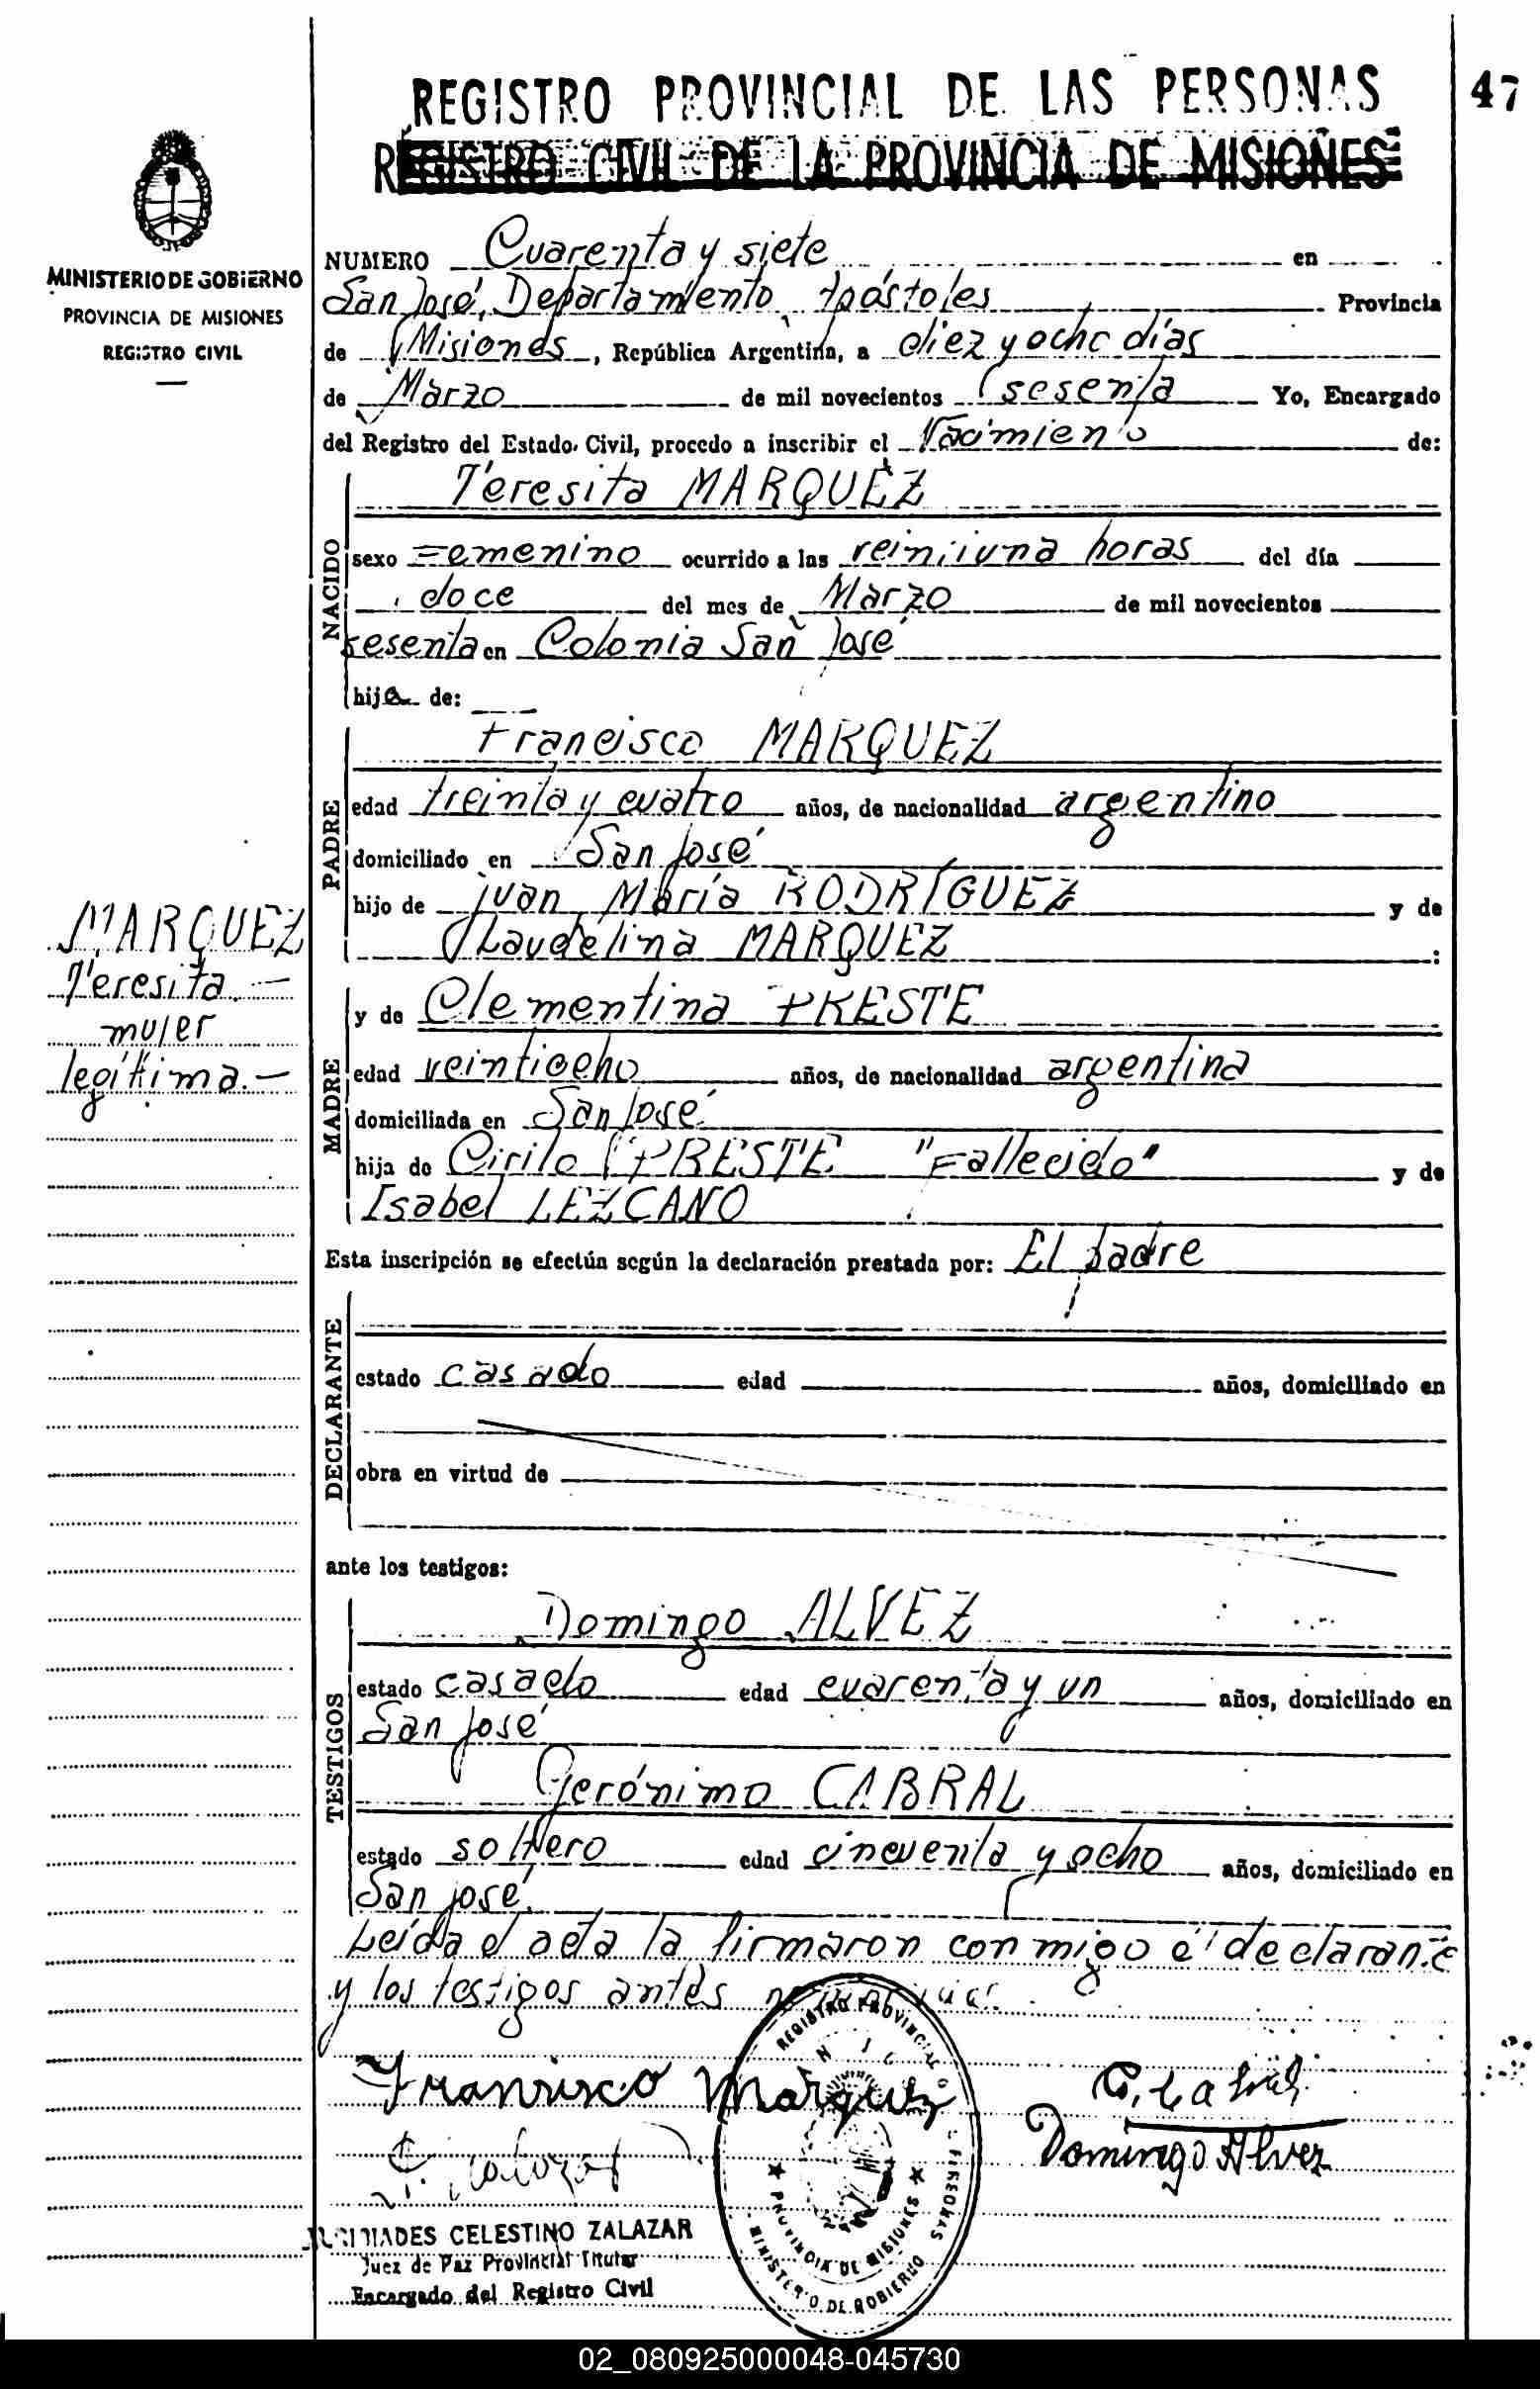 REGISTRO PROVINCIAL DE LAS PERSONAS
47
REGISTRO CIVIL DE LA PROVINCIA DE MISIONES
MINISTERIO DE GOBIERNO
PROVINCIA DE MISIONES
REGISTRO CIVIL
NUMERO Cuarenta y siete en
San José, Departamento Apóstoles Provincia
de Misiones, República Argentina, a diez y ocho días
de Marzo de mil novecientos sesenta Yo, Encargado
del Registro del Estado Civil, procedo a inscribir el Nacimiento de:
NACIDO
Teresita MARQUEZ
sexo Femenino ocurrido a las veintiuna horas del día
doce del mes de Marzo de mil novecientos
sesenta en Colonia San José
hija de:
PADRE
Francisco MARQUEZ
edad treinta y cuatro años, de nacionalidad argentino
domiciliado en San José
hijo de Juan María RODRÍGUEZ y de
Laudelina MARQUEZ :
MARQUEZ
Teresita.—
mujer
legítima.—
MADRE
y de Clementina PRESTE
edad veintiocho años, de nacionalidad argentina
domiciliada en San José
hija de Cirilo PRESTE "Fallecido" y de
Isabel LEZCANO
Esta inscripción se efectúa según la declaración prestada por: El padre
DECLARANTE
estado casado edad años, domiciliado en
obra en virtud de
ante los testigos:
TESTIGOS
Domingo ALVEZ
estado casado edad cuarenta y un años, domiciliado en
San José
Gerónimo CABRAL
estado soltero edad cincuenta y ocho años, domiciliado en
San José.
Leída el acta la firmaron conmigo el declarante
y los testigos antes
Francisco Marquez
G. Cabral
Domingo Alvez
CELESTINO ZALAZAR
Juez de Paz Provincial Titular
Encargado del Registro Civil
REGISTRO PROVINCIAL DE PERSONAS
PROVINCIA DE MISIONES
MINISTERIO DE GOBIERNO
02_080925000048-045730